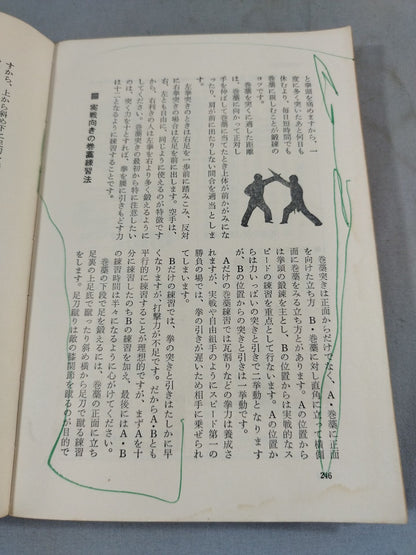 と拳頭を痛めますから、一
度に多く突いたあと何日も
休むより、毎日短時間でも
巻藁に親しむことが鍛錬の
コツです。
巻藁を突くに適した距離
は、巻藁に向かって正対し、
手を伸ばして巻藁に当てたとき上体が前かがみにな
ったり、肩が前に出たりしない間合を適当としま
す。
左拳突きのときは右足を一歩前に踏みこみ、反対
に右拳突きの場合は左足を前に出します。空手は、
右、左とも自由に、同じように使えるのが特徴です
から、右利きの人は左拳を右より多く鍛えるように
してください。巻藁突きの最初から特に注意したい
のは、突く力を十とすれば、拳を腰に引きもどす力
は十二となるように練習することです。
実戦向きの巻藁練習法
巻藁突きは正面からだけでなく、A・巻藁に正面
を向けた立ち方、B・巻藁に対し直角に立って横側
面に巻藁をみる立ち方とがあります。Aの位置から
は拳頭の鍛錬を主とし、Bの位置からは実戦的なス
ピードの練習を重点として行ないます。Aの位置か
らは力いっぱいの突きと引きで二挙動となります
が、Bの位置からの突きと引きは一挙動です。
Aだけの巻藁練習では瓦割りなどの拳力は養成さ
れますが、実戦や自由組手のようにスピード第一の
勝負の場では、拳の引きが遅いため相手に乗ぜられ
ます。
Bだけの練習では、拳の突きと引きはたしかに早
くなりますが、打撃力が不足です。だからA・Bとも
平行的に練習することが理想的ですが、まずAを十
分に練習したのちBの練習を加え、最後にはA・B
の練習時間は半々になるように心がけてください。
巻藁の下段で足を鍛えるには、巻藁の正面に立ち
足裏の上足底で蹴ったり斜め横から足刀で蹴る練習
をします。足刀蹴りは敵の膝関節を蹴るのが目的で
すから、上から斜め下に
246